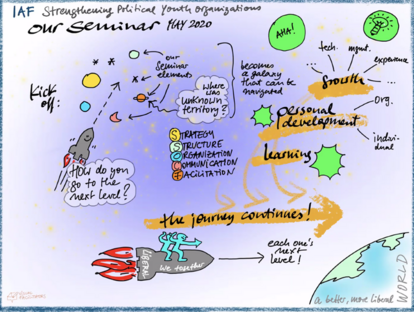 IAF Strengthening Political Youth Organizations
OUR SEMINAR MAY 2020
AHA!
tech.
mgmt.
experience
GROWTH
our
seminar
elements
becomes
a galaxy
that can be
navigated
Kick
off:
where
was
unknown
territory?
personal
development
org.
indivi-
dual
STRATEGY
STRUCTURE
ORGANIZATION
COMMUNICATION
FACILITATION
learning
HOW do you
go to the
next level?
the journey continues!
LIBERAL
we together
each one's
next
level!
a better, more liberal
WORLD